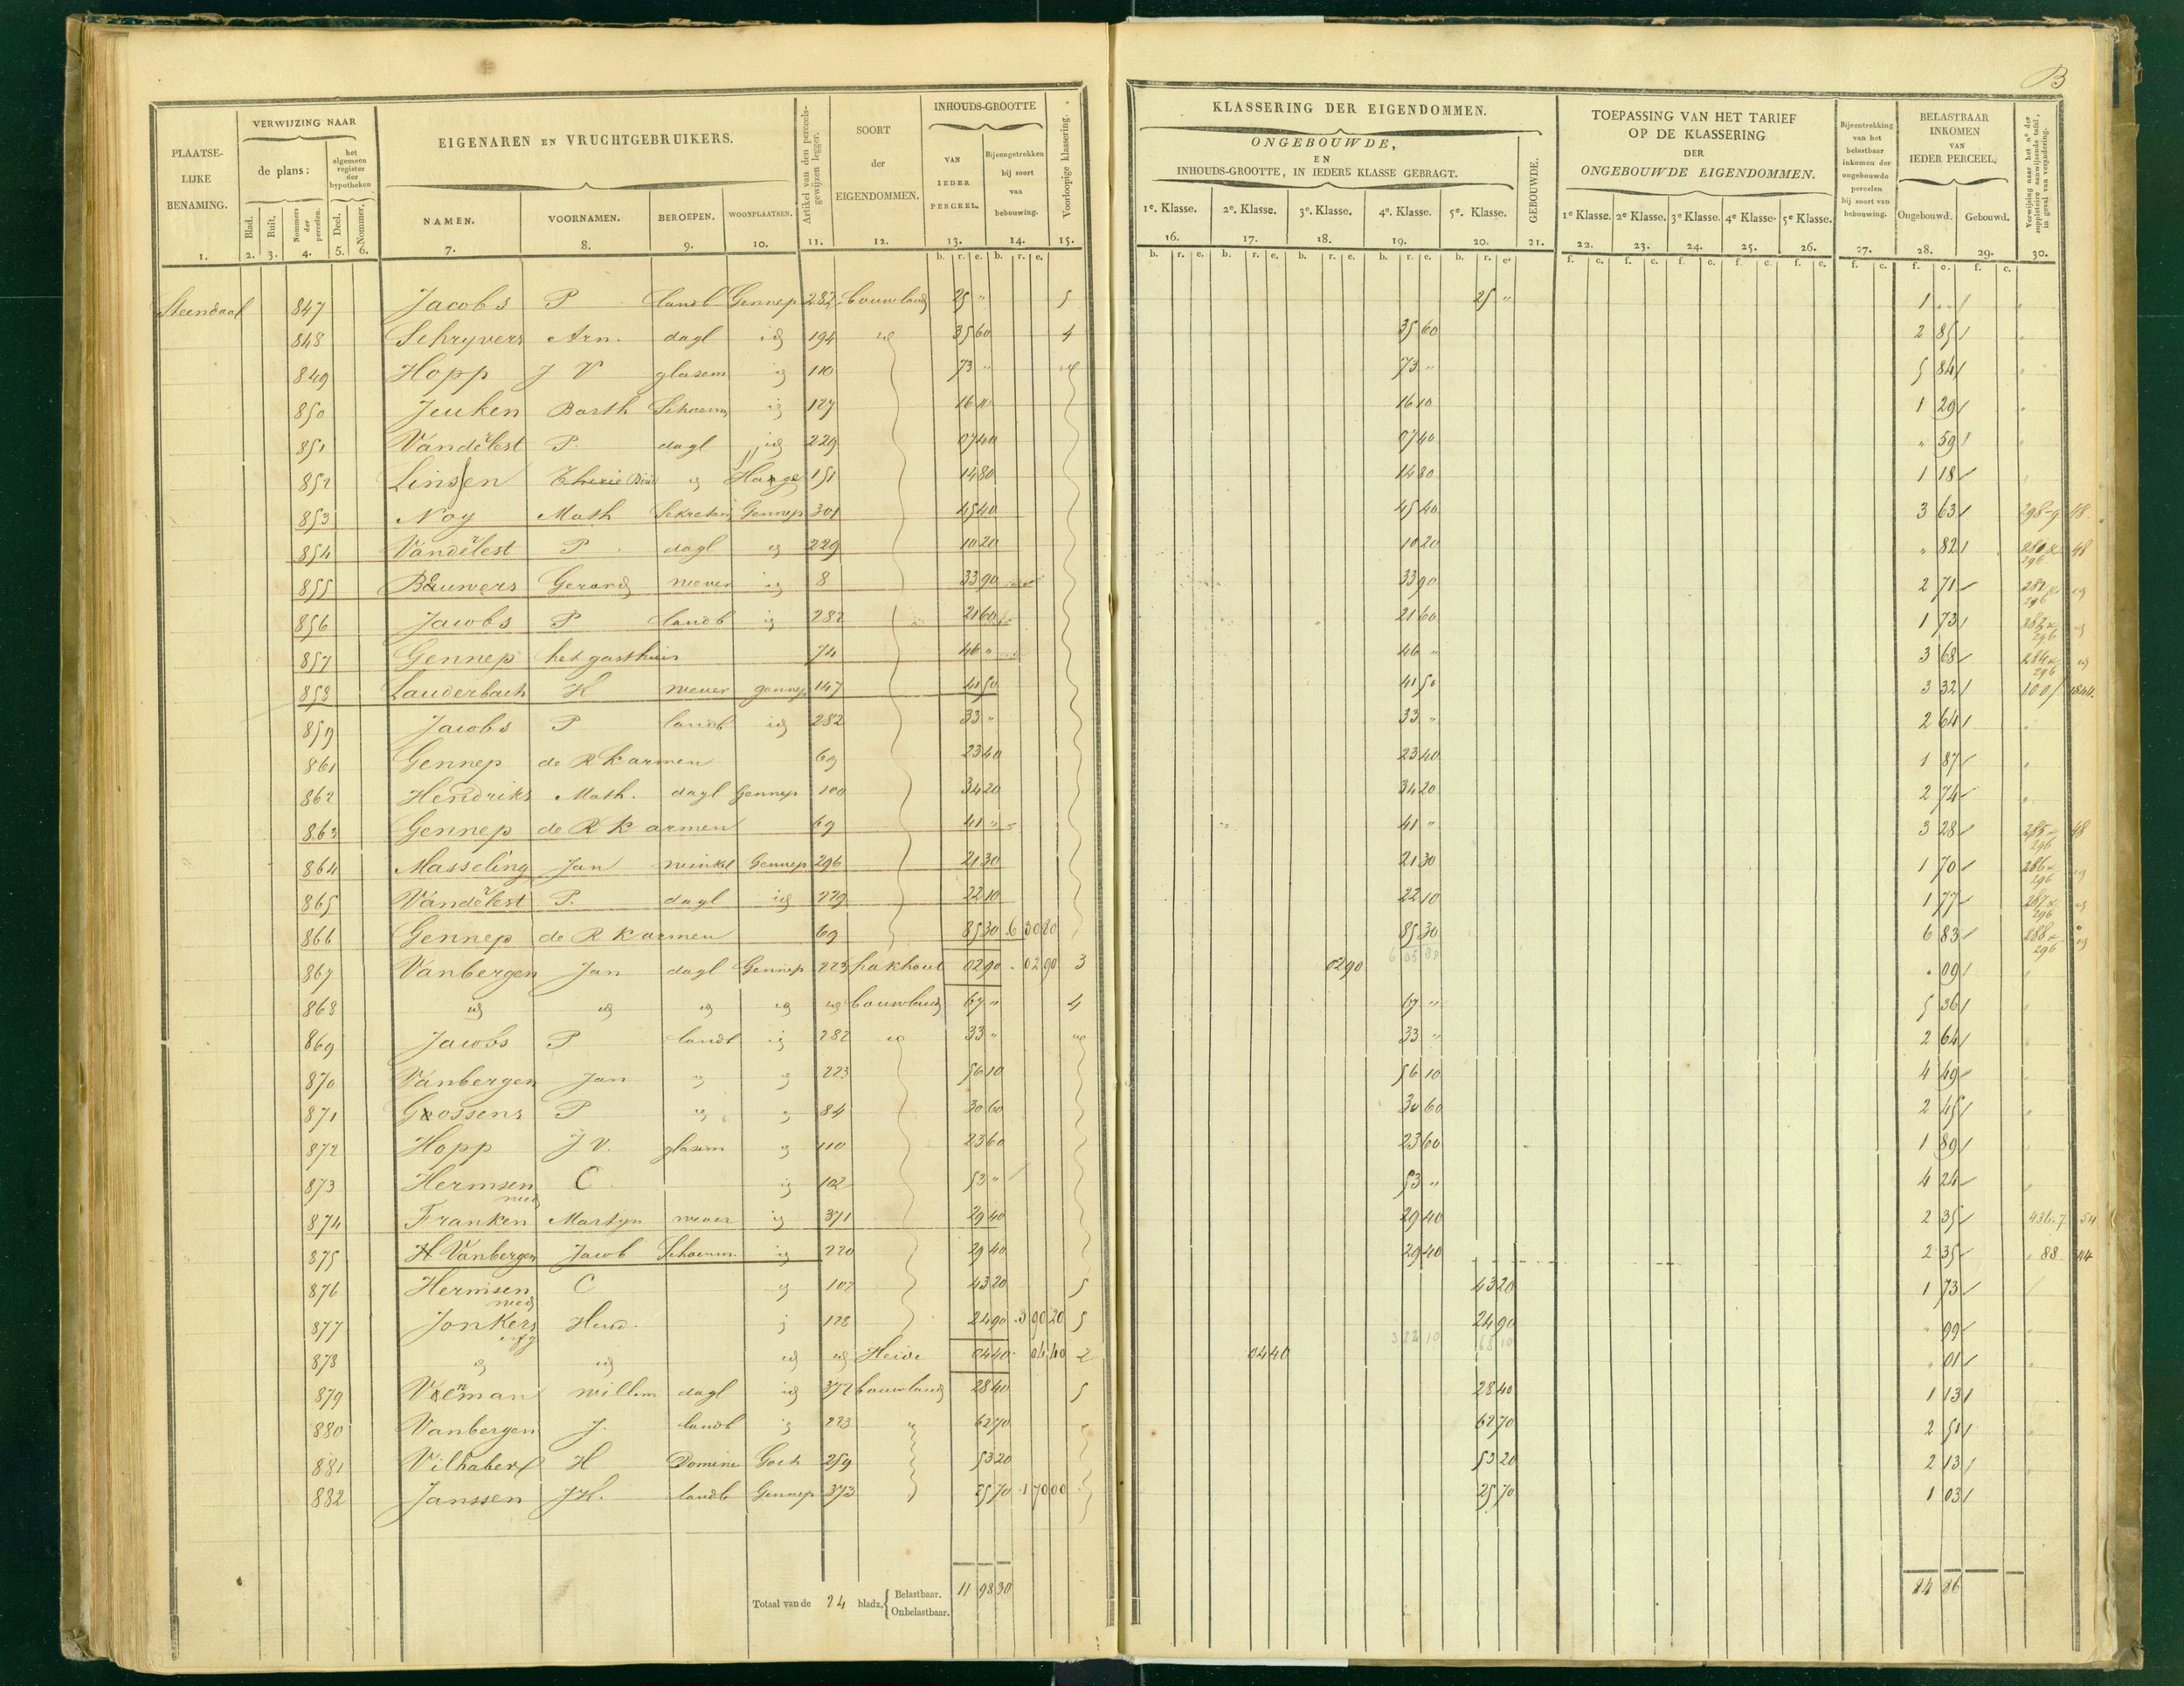 B
PLAATSE-LIJKE BENAMING. 1.
VERWIJZING NAAR
de plans:
Blad. 2. Ruit. 3. Nommers der perceelen. 4.
het algemeen register der hypotheken
Deel. 5. Nommer. 6.
EIGENAREN EN VRUCHTGEBRUIKERS.
NAMEN. 7. VOORNAMEN. 8. BEROEPEN. 9. WOONPLAATSEN. 10.
Artikel van den perceels-gewijzen legger. 11.
SOORT der EIGENDOMMEN. 12.
INHOUDS-GROOTTE
VAN IEDER PERCEEL. 13.
Bijeengetrokken bij soort van bebouwing. 14.
Voorloopige klassering. 15.
KLASSERING DER EIGENDOMMEN.
ONGEBOUWDE,
EN
INHOUDS-GROOTTE, IN IEDERE KLASSE GEBRAGT.
1e. Klasse. 16. 2e. Klasse. 17. 3e. Klasse. 18. 4e. Klasse. 19. 5e. Klasse. 20.
GEBOUWDE. 21.
TOEPASSING VAN HET TARIEF
OP DE KLASSERING
DER
ONGEBOUWDE EIGENDOMMEN.
1e Klasse. 22. 2e Klasse. 23. 3e Klasse. 24. 4e Klasse. 25. 5e Klasse. 26.
Bijeentrekking van het belastbaar inkomen der ongebouwde percelen bij soort van bebouwing. 27.
BELASTBAAR INKOMEN VAN IEDER PERCEEL.
Ongebouwd. 28. Gebouwd. 29.
Verwijzing naar het no der suppletoire aanwijzende tafel, in geval van verandering. 30.
Steendaal 847 Jacobs P landb Gennep 282 bouwland 25 " 5 25 " 1 "
848 Schryvers Arn. dagl id 194 id 35 60 4 35 60 2 85
849 Hopp J V glasem id 110 73 " id 73 " 5 84
850 Jeuken Barth Schoenm id 127 16 10 16 10 1 29
851 Vandelest P. dagl id 229 07 40 07 40 " 59
852 Linssen id 151 14 80 14 80 1 18
853 Noy Math Sekretaris Gennep 301 45 40 45 40 3 63 298-9 48
854 Vandelest P. dagl id 229 10 20 10 20 " 82 296 48
855 Bouwers Gerard wever id 8 33 90 33 90 2 71 296 id
856 Jacobs P landb id 282 21 60 21 60 1 73 296 id
857 Gennep het gasthuis 74 46 " 46 " 3 68 284 296 id
858 Lauderbach K wever gennep 147 41 50 41 50 3 32 1844.
859 Jacobs P landb id 282 33 " 33 " 2 64
861 Gennep de R K armen 69 23 40 23 40 1 87
862 Hendriks Math. dagl Gennep 100 34 20 34 20 2 74
863 Gennep de R K armen 69 41 " 41 " 3 28 285 296 48
864 Masseling Jan winkl Gennep 296 21 30 21 30 1 70 286 296 id
865 Vandelest P. dagl id 229 22 10 22 10 1 77 287 296 id
866 Gennep de R K armen 69 85 30 6 30 20 85 30 6 83 288 296 id
867 Vanbergen Jan dagl Gennep 223 hakhout 02 90 . 02 90 3 02 90 . 09
868 id id id id id bouwland 67 " 4 67 " 5 36
869 Jacobs P landb id 282 id 33 " id 33 " 2 64
870 Vanbergen Jan id id 223 56 10 56 10 4 49
871 Goossens P id id 84 30 60 30 60 2 45
872 Hopp J V. glasem id 110 23 60 23 60 1 89
873 Hermsen wed C id 102 53 " 53 " 4 24
874 Franken Martyn wever id 371 29 40 29 40 2 35 436.7 54
875 H Vanbergen Jacob Schoenm. id 220 29 40 29 40 2 35 88 44
876 Hermsen wed C id 102 43 20 5 43 20 1 73
877 Jonkers Hend. id 128 24 90 3 90 20 5 24 90 " 99
878 id id id id Heide 04 40 04 40 2 04 40 " 01
879 Veenman willem dagl id 372 bouwland 28 40 5 28 40 1 13
880 Vanbergen J. landb id 223 " 62 70 62 70 2 51
881 Vilhaber H Domine Goch 259 53 20 53 20 2 13
882 Janssen J H. landb Gennep 373 25 70 1 70 00 25 70 1 03
Totaal van de 24 bladz. { Belastbaar. Onbelastbaar. 11 98 30 84 86